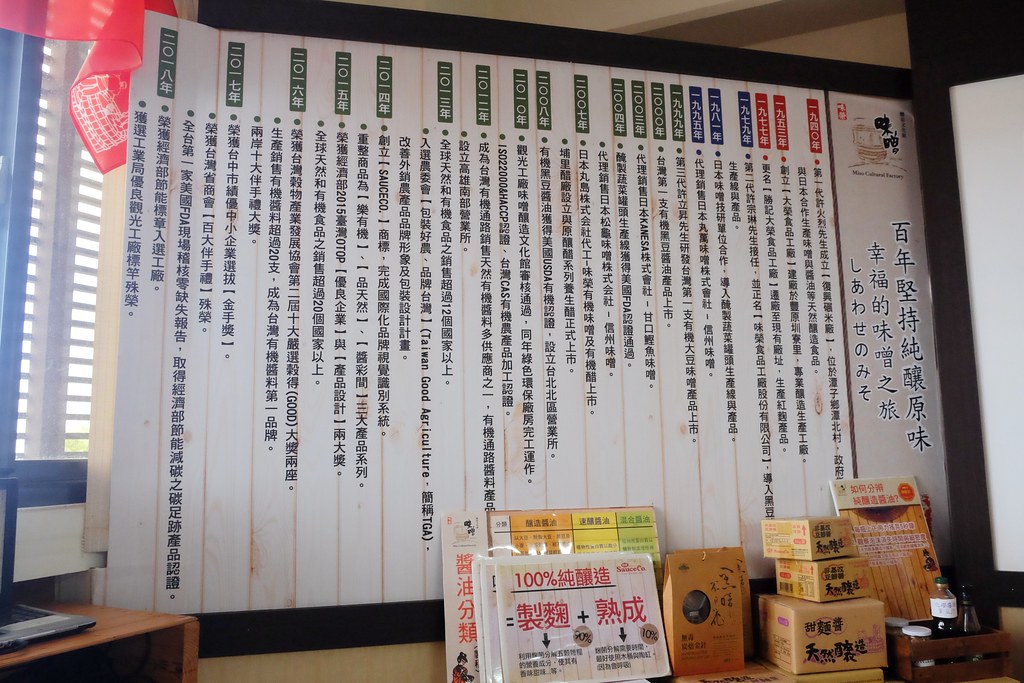 味噌
Miso Cultural Factory
百年堅持純釀原味
幸福的味噌之旅
しあわせのみそ
一九四〇年
第一代許火烈先生成立【復興碾米廠】，位於潭子鄉潭北村，政府
與日本合作生產味噌與醬油等天然釀造食品。
一九五三年
創立【大榮食品工廠】建廠於豐原圳寮里，專業釀造生產工廠。
一九七七年
更名【勝記大榮食品工廠】遷廠至現有廠址，生產紅麴產品。
一九七九年
第二代許宗琳先生接任，並正名【味榮食品工廠股份有限公司】，導入黑豆
生產線與產品。
一九八一年
日本味噌技研單位合作，導入醃製蔬菜罐頭生產線與產品。
一九九五年
代理銷售日本丸萬味噌株式會社－信州味噌。
一九九九年
第三代許立昇先生研發台灣第一支有機大豆味噌產品上市。
二〇〇〇年
台灣第一支有機黑豆醬油產品上市。
二〇〇三年
代理銷售日本KANESA株式會社－甘口鰹魚味噌。
二〇〇四年
醃製蔬菜罐頭生產線獲得美國FDA認證通過
代理銷售日本松龜味噌株式會社－信州味噌。
二〇〇七年
日本丸島株式会社代工－味榮有機味噌及有機醋上市。
埔里醋廠設立與原釀醋系列養生醋正式上市。
二〇〇八年
有機黑豆醬油獲得美國USDA有機認證，設立台北北區營業所。
二〇一〇年
觀光工廠味噌釀造文化館審核通過，同年綠色環保廠房完工運作。
ISO22000&HACCP認證、台灣CAS有機農產品加工認證。
二〇一二年
成為台灣有機通路銷售天然有機醬料多供應商之一，有機通路醬料產品
設立高雄南部營業所。
二〇一三年
全球天然和有機食品之銷售超過12個國家以上。
入選農委會【包裝好農、品牌台灣】(Taiwan Good Agriculture，簡稱TGA)，
改善外銷農產品品牌形象及包裝設計計畫。
二〇一四年
創立【SAUCECO】商標，完成國際化品牌視覺識別系統。
重整商品為【樂有機】、【品天然】、【醬彩間】三大產品系列。
二〇一五年
榮獲經濟部2015臺灣OTOP【優良企業】與【產品設計】兩大獎。
全球天然和有機食品之銷售超過20個國家以上。
二〇一六年
榮獲台灣穀物產業發展協會第二屆十大嚴選穀得(GOOD)大獎兩座。
生產銷售有機醬料超過20支，成為台灣有機醬料第一品牌。
兩岸十大伴手禮大獎。
二〇一七年
榮獲台中市績優中小企業選拔【金手獎】。
榮獲台灣省商會【百大伴手禮】殊榮。
全台第一家美國FDA現場稽核零缺失報告，取得經濟部節能減碳之碳足跡產品認證。
二〇一八年
榮獲經濟部節能標章入選工廠。
獲選工業局優良觀光工廠標竿殊榮。
味噌
醬油分類
分類
釀造醬油
速釀醬油
混合醬油
SauceCo.
100%純釀造
=製麴+熟成
70%
10%
如何分辨
純釀造醬油?
天然釀造
天然釀造
甜麵醬
天然釀造